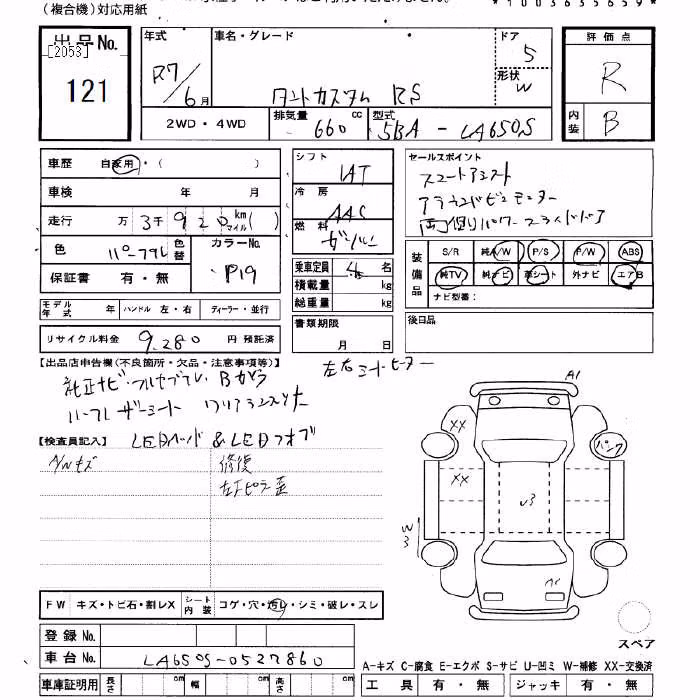 (複合機)対応用紙
*1003635659*
出品No.
[2053]
121
年式 車名・グレード ドア 5
R7/6月 タントカスタム RS 形状 W
2WD・4WD 排気量 660cc 型式 5BA-LA650S
評価点
R
内装 B
車歴 自家用・( )
車検 年 月
走行 万3千920km マイル( )
色 パープル 色替 カラーNo. P19
保証書 有・無
モデル年式 年 ハンドル 左・右 ディーラー・並行
リサイクル料金 9,280 円 預託済
シフト IAT
冷房 AAC
燃料 ガソリン
乗車定員 4名
積載量 kg
総重量 kg
書類期限
月 日
セールスポイント
スマートアシスト
アラウンドビューモニター
両側パワースライドドア
装備品 S/R 純A/W P/S P/W ABS
純TV 純ナビ 革シート 外ナビ エアB
ナビ型番:
後日品
【出品店申告欄(不良箇所・欠品・注意事項等)】
左右シートヒーター
純正ナビ・フルセグTV Bカメラ
ハーフレザーシート
【検査員記入】 LEDヘッド&LEDフォグ
A/Wキズ 修復
左Fピラー歪
A1
XX
パンク
XX
U3
W3
A1
FW キズ・トビ石・割レX シート内装 コゲ・穴・汚レ・シミ・破レ・スレ
スペア
登録No.
車台No. LA650S-0527860
A-キズ C-腐食 E-エクボ S-サビ U-凹ミ W-補修 XX-交換済
車庫証明用 長さ cm 幅 cm 高さ cm 工具 有・無 ジャッキ 有・無